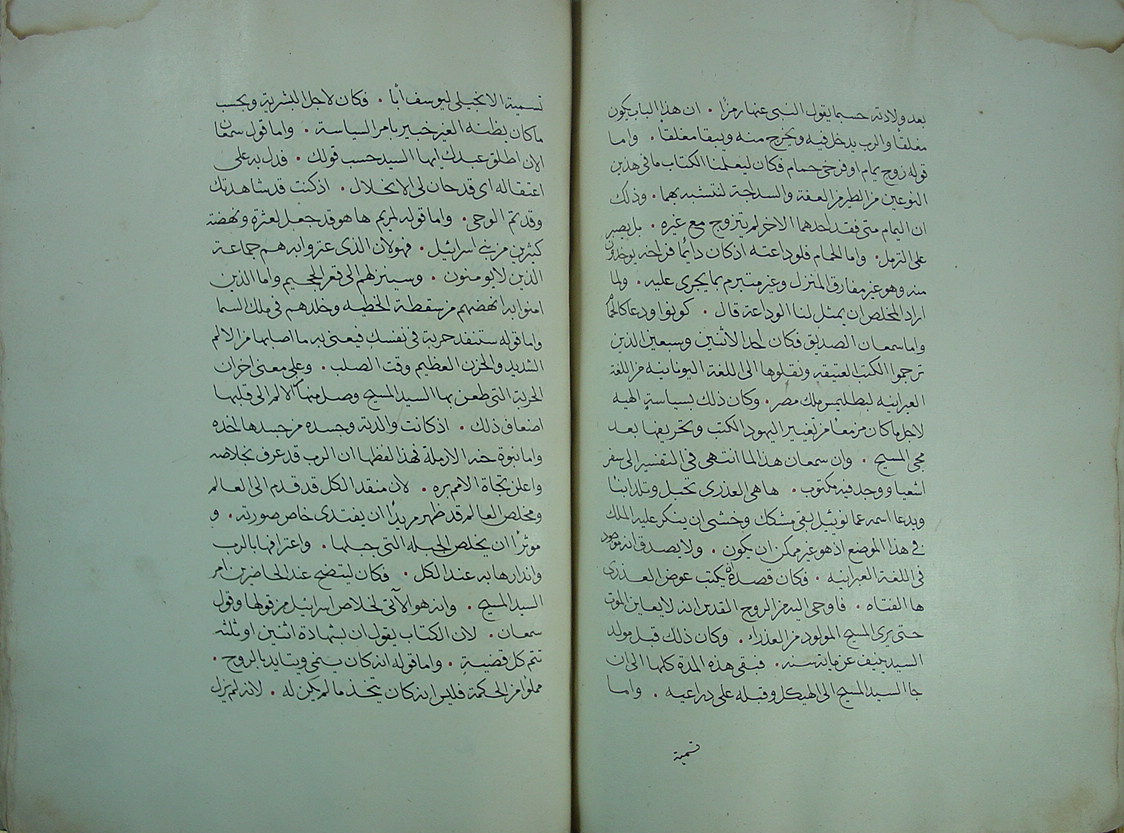 بعد ولادته حسبما يقول النبى عنها رمزًا • ان هذا الباب يكون
مغلقًا والرب يدخل فيه ويخرج منه ويبقا مغلقًا • واما
قوله زوج يمام او فرخى حمام فكان ليعلمنا الكتاب ما فى هذين
النوعين من الطير من العفة والسداجة لنتشبه بهما • وذلك
ان اليمام متى فقد احدهما الاخر لم يتزوج مع غيره • بل يصبر
على الترمل • واما الحمام فلوداعته اذ كان دايمًا فراخه يوخذون
منه وهو غير مفارق المنزل وغير متبرم بما يجرى عليه • ولما
اراد المخلص ان يمثل لنا الوداعة قال • كونوا ودعا كالحمام
واما سمعان الصديق فكان احد الاثنين وسبعين الذين
ترجموا الكتب العتيقه ونقلوها الى اللغة اليونانيه من اللغة
العبرانيه لبطليموس ملك مصر • وكان ذلك بسياسةٍ الهيه
لاجل ما كان مزمعًا من تغيير اليهود الكتب وتحريفها بعد
مجى المسيح • وان سمعان هذا لما انتهى فى التفسير الى سفر
اشعيا ووجد فيه مكتوب • ها هى العذرى تحبل وتلد ابنا
ويدعا اسمه عمانوييل بقى متشكك وخشى ان ينكر عليه الملك
فى هذا الموضع اذ هو غير ممكن ان يكون • ولا يصدق انه موجود
فى اللغة العبرانيه • فكان قصده ان يكتب عوض العذرى
ها الفتاه • فاوحى اليه من الروح القدس انه لا يعاين الموت
حتى يرى المسيح المولود من العذراء • وكان ذلك قبل مولد
السيد بنيف عن مايتى سنه • فبقى هذه المدة كلها الى ان
جا السيد المسيح الى الهيكل وقبله على دراعيه • واما
تسمية
تسمية الانجيلى ليوسف أبا • فكان لاجل البشرية وبحسب
ما كان يظنه الغير خبير بامر السياسة • واما قول سمعان
الان اطلق عبدك ايها السيد حسب قولك • فدل به على
اعتقاله اى قد حان لى الانحلال • اذ كنت قد شاهدتك
وقد تم الوحى • واما قوله لمريم ها هو قد جعل لعثرة ونهضة
كثيرين من بنى اسرائيل • فهو لان الذى عثروا به هم جماعة
الذين لا يومنون • وسينزلهم الى قعر الجحيم واما الذين
امنوا به انهضهم من سقطة الخطيه وخلدهم فى ملك السما
واما قوله ستنفذ حربة فى نفسك فيعنى به ما اصابها من الالم
الشديد والحزن العظيم وقت الصلب • وعلى معنى اخر ان
الحربة التى طعن بها السيد المسيح وصل منها الالم الى قلبها
اضعاف ذلك • اذ كانت والدته وجسده من جسدها اخذه
واما نبوة حنه الارملة فهذا لفظها ان الرب قد عرف بخلاصه
واعلن تجاة الامم بره • لان منقد الكل قد قدم الى العالم
ومخلص العالم قد ظهر مريدًا ان يفتدى خاص صورته • و
موثرًا ان يخلص الجبله التى جبلها • واعترافها بالرب
وانذارها به عند الكل • فكان ليتضح عند الحاضرين امر
السيد المسيح • وانه هو الآتى لخلاص اسرائيل من قولها وقول
سمعان • لان الكتاب يقول ان بشهادة اثنين او ثلثه
تتم كل قضية • واما قوله انه كان ينمى ويتايد بالروح •
مملوا من الحكمة فليس انه كان يتخذ ما لم يكن له • لانه لم يزل